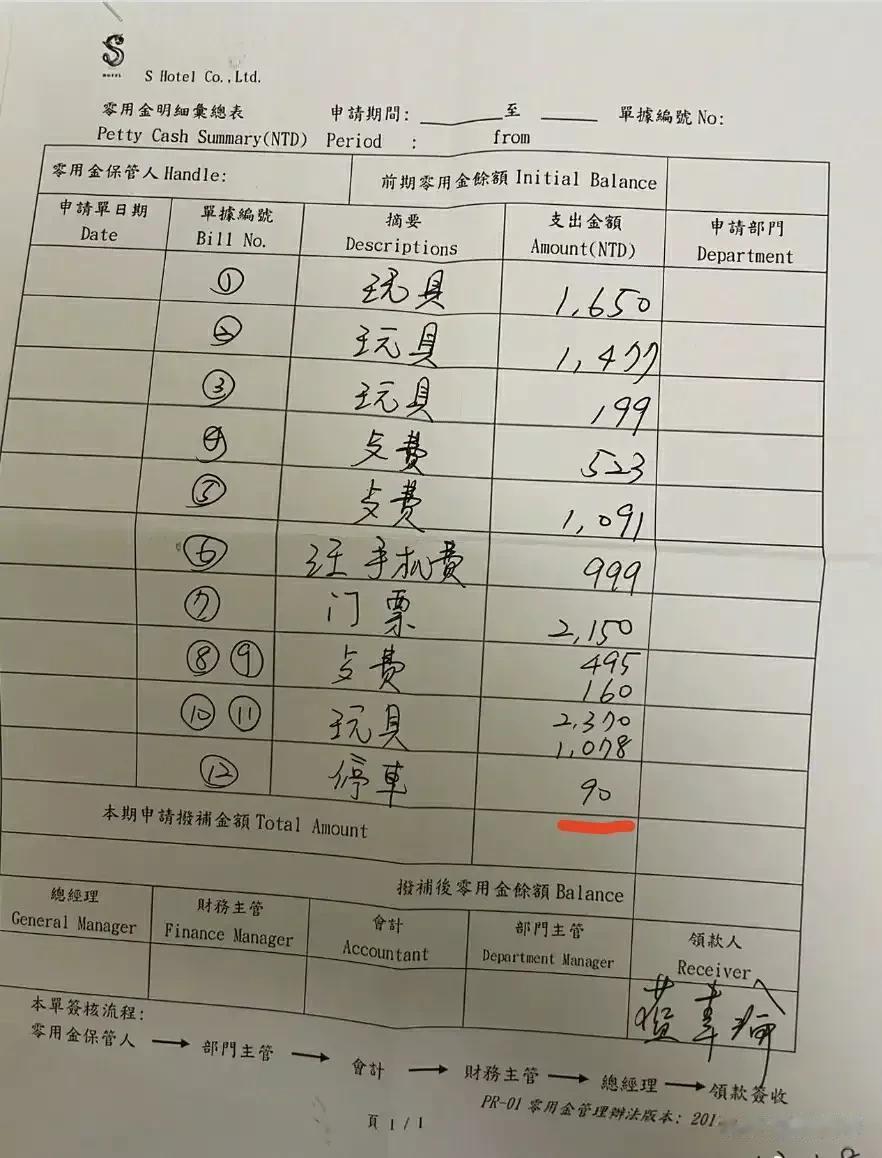 S
HOTEL
S Hotel Co.,Ltd.
零用金明細彙總表 申請期間: 至 單據編號 No:
Petty Cash Summary(NTD) Period : from
零用金保管人 Handle: 前期零用金餘額 Initial Balance
申請單日期 單據編號 摘要 支出金額 申請部門
Date Bill No. Descriptions Amount(NTD) Department
① 玩具 1,650
② 玩具 1,477
③ 玩具 199
④ 费 523
⑤ 费 1,091
⑥ 汪 手机費 999
⑦ 门票 2,150
⑧ ⑨ 費 495
160
⑩ ⑪ 玩具 2,370
1,078
⑫ 停車 90
本期申請撥補金額 Total Amount
撥補後零用金餘額 Balance
總經理 財務主管 會計 部門主管 領款人
General Manager Finance Manager Accountant Department Manager Receiver
本單簽核流程:
零用金保管人 → 部門主管 → 會計 → 財務主管 → 總經理 → 領款簽收
PR-01 零用金管理辦法版本: 201
頁 1 / 1